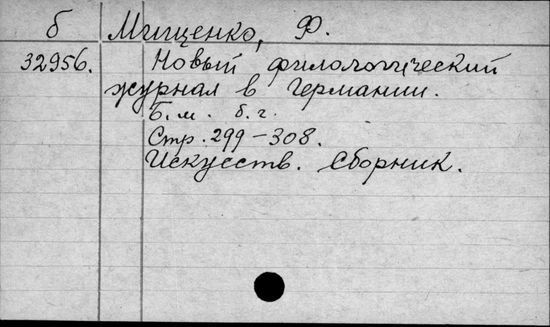 б Мищенко, Ф.
32956. Новый филологический
журнал в Германии.
Б. м. б. г.
Стр. 299-308.
Искусств. сборник.